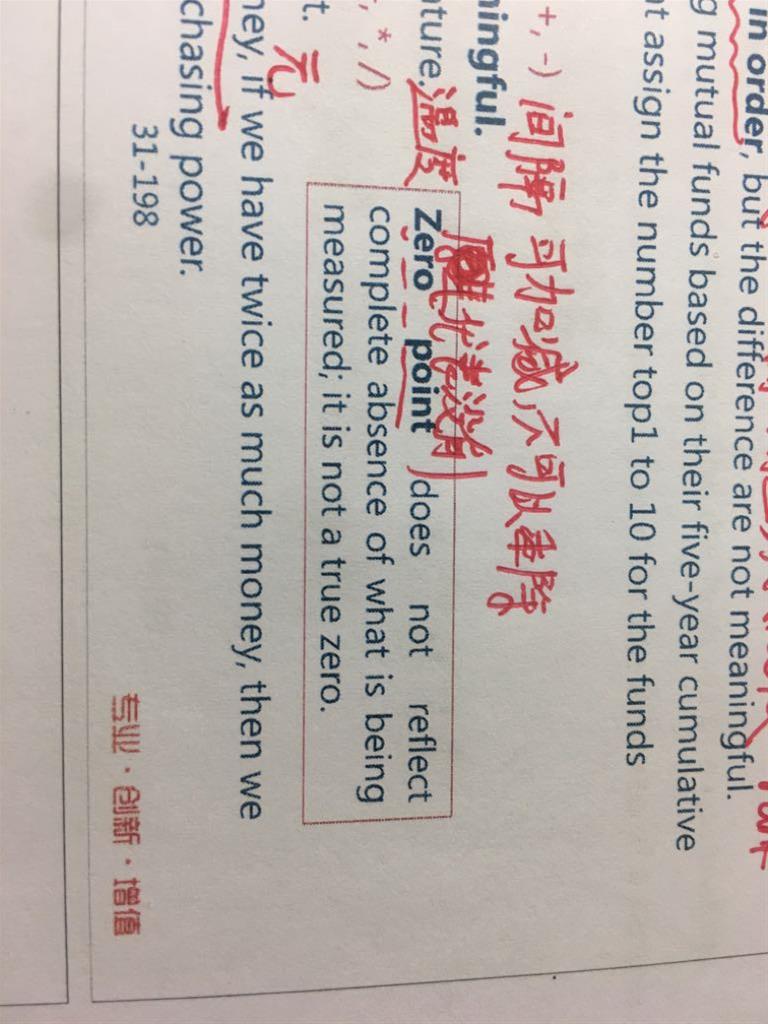 in order, but the difference are not meaningful.
g mutual funds based on their five-year cumulative
t assign the number top1 to 10 for the funds
+, -) 间隔 可加减,不可以乘除
ningful.
ature. 温度
Zero point does not reflect
complete absence of what is being
measured; it is not a true zero.
, *, /)
t. 元
ney, if we have twice as much money, then we
chasing power.
31-198
专业·创新·增值